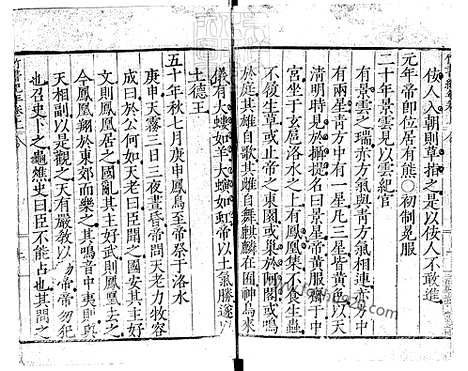 佞人入朝則草指之是以佞人不敢進
元年帝即位居有熊○初制冕服
二十年景雲見以雲紀官
有景雲之瑞赤方氣與青方氣相連赤方中
有兩星青方中有一星凡三星皆黃色以天
清明時見於攝提名曰景星帝黃服齋于中
宮坐于玄扈洛水之上有鳳凰集不食生蟲
不履生草或止帝之東園或巢於阿閣或鳴
於庭其雄自歌其雌自舞麒麟在囿神鳥來
儀有大螻如羊大螾如虹帝以土氣勝遂以
土德王
五十年秋七月庚申鳳鳥至帝祭于洛水
庚申天霧三日三夜晝昏帝問天老力牧容
成曰於公何如天老曰臣聞之國安其主好
文則鳳凰居之國亂其主好武則鳳凰去之
今鳳凰翔於東郊而樂之其鳴音中夷則與
天相副以是觀之天有嚴教以賜帝帝勿犯
也召史卜之龜燋史曰臣不能占也其問之